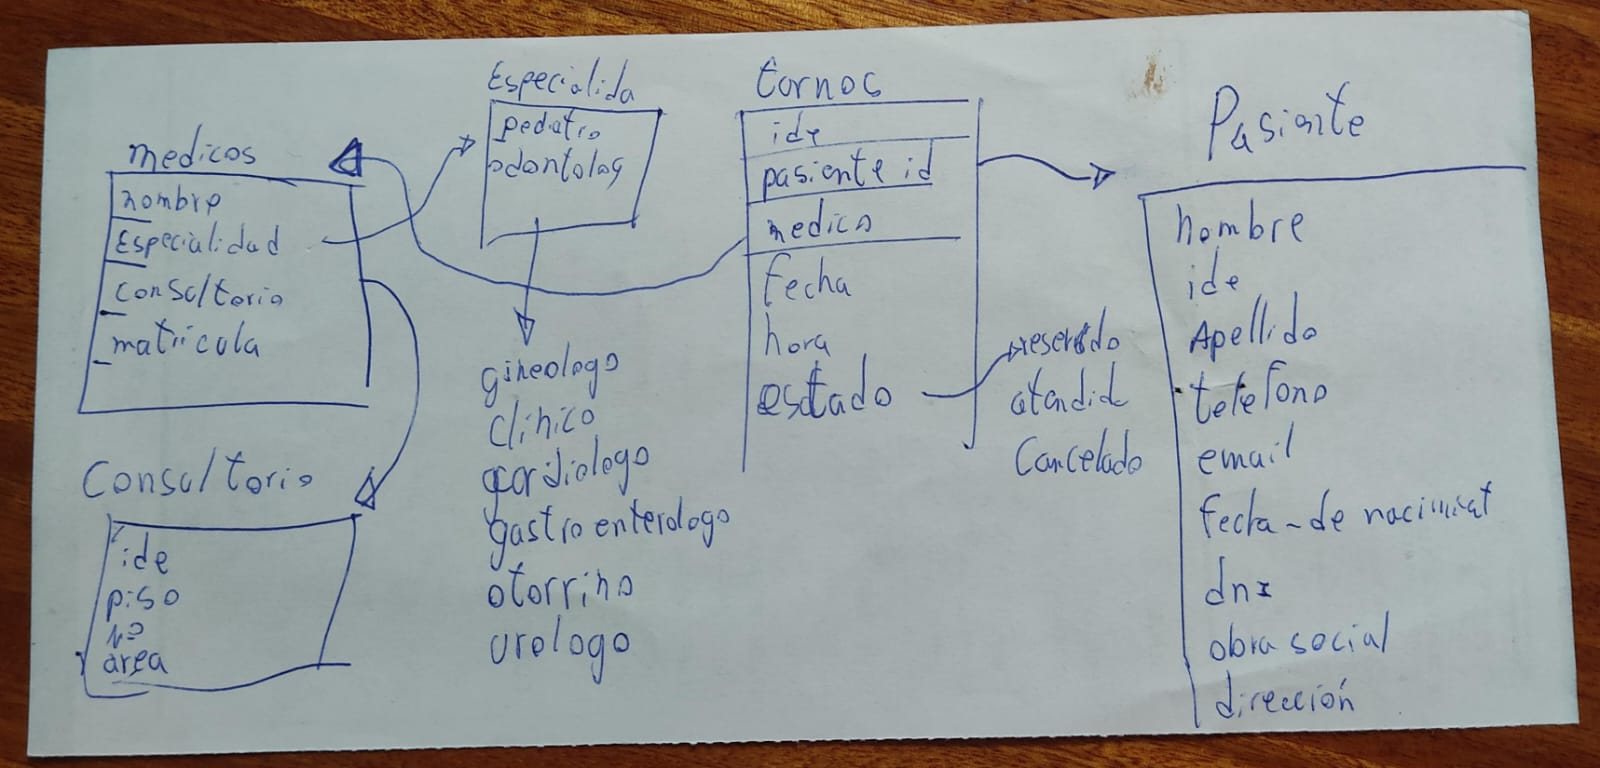 medicos
nombre
Especialidad
consultorio
matricula
Consultorio
ide
piso
Nº
area
Especialida
pediatra
odontolog
gineologo
clinico
cardiologo
gastroenterologo
otorrino
urologo
turnos
ide
pasiente id
medico
fecha
hora
estado
reservado
atendido
Cancelado
Pasiente
nombre
ide
Apellido
telefono
email
fecha-de nacimient
dni
obra social
dirección